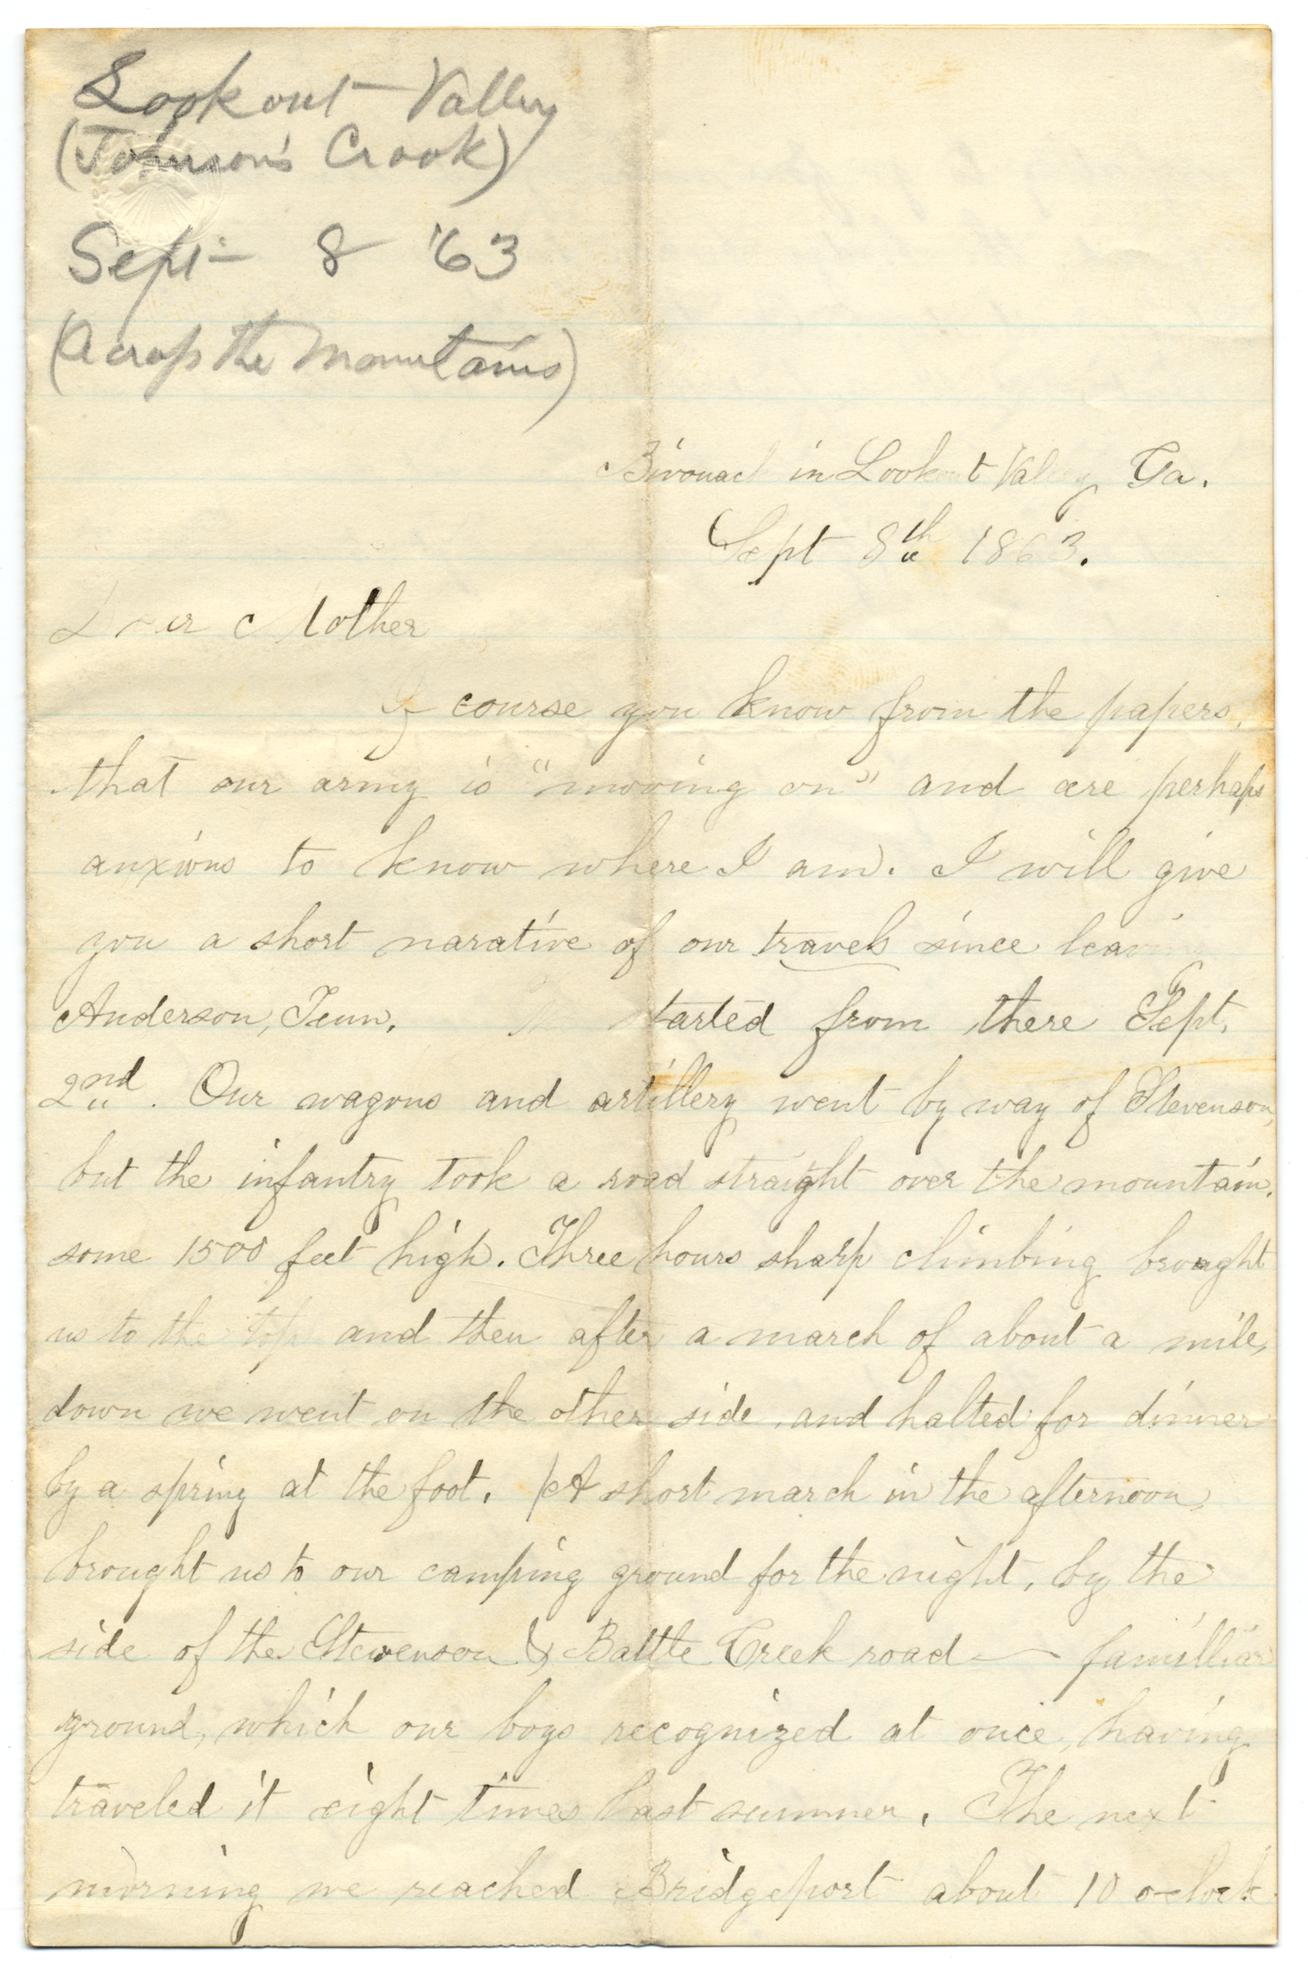 Lookout Valley
(Johnson's Crook)
Sept 8 '63
(Across the Mountains)
Bivouac in Lookout Valley Ga.
Sept 8th 1863.
Dear Mother
Of course you know from the papers,
that our army is "moving on" and are perhaps
anxious to know where I am. I will give
you a short narative of our travels since leaving
Anderson, Tenn. started from there Sept.
2nd. Our wagons and artillery went by way of Stevenson,
but the infantry took a road straight over the mountain,
some 1500 feet high. Three hours sharp climbing brought
us to the top and then after a march of about a mile,
down we went on the other side, and halted for dinner
by a spring at the foot. A short march in the afternoon,
brought us to our camping ground for the night, by the
side of the Stevenson & Battle Creek road — familliar
ground, which our boys recognized at once, having
traveled it eight times last summer. The next
morning we reached Bridgeport about 10 oclock